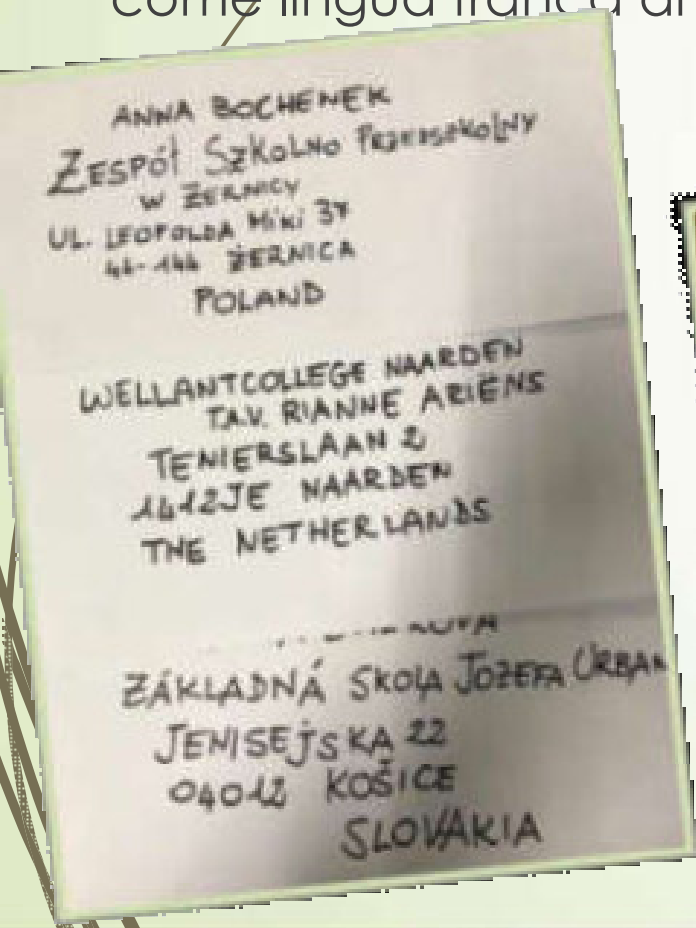 come lingua franca di
ANNA BOCHENEK
ZESPÓŁ SZKOLNO PRZEDSZKOLNY
W ŻERNICY
UL. LEOPOLDA MIKI 37
44-144 ŻERNICA
POLAND
WELLANTCOLLEGE NAARDEN
T.A.V. RIANNE ARIËNS
TENIERSLAAN 2
1412JE NAARDEN
THE NETHERLANDS
ZÁKLADNÁ SKOLA JOZEFA URBAN
JENISEJSKA 22
04012 KOŠICE
SLOVAKIA